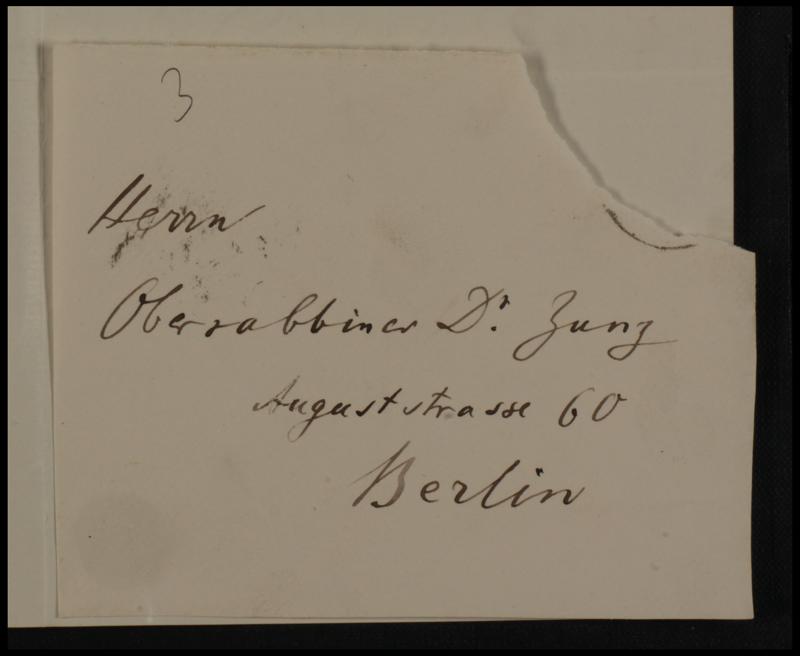 3
Herrn
Oberrabbiner Dr. Zunz
Auguststrasse 60
Berlin